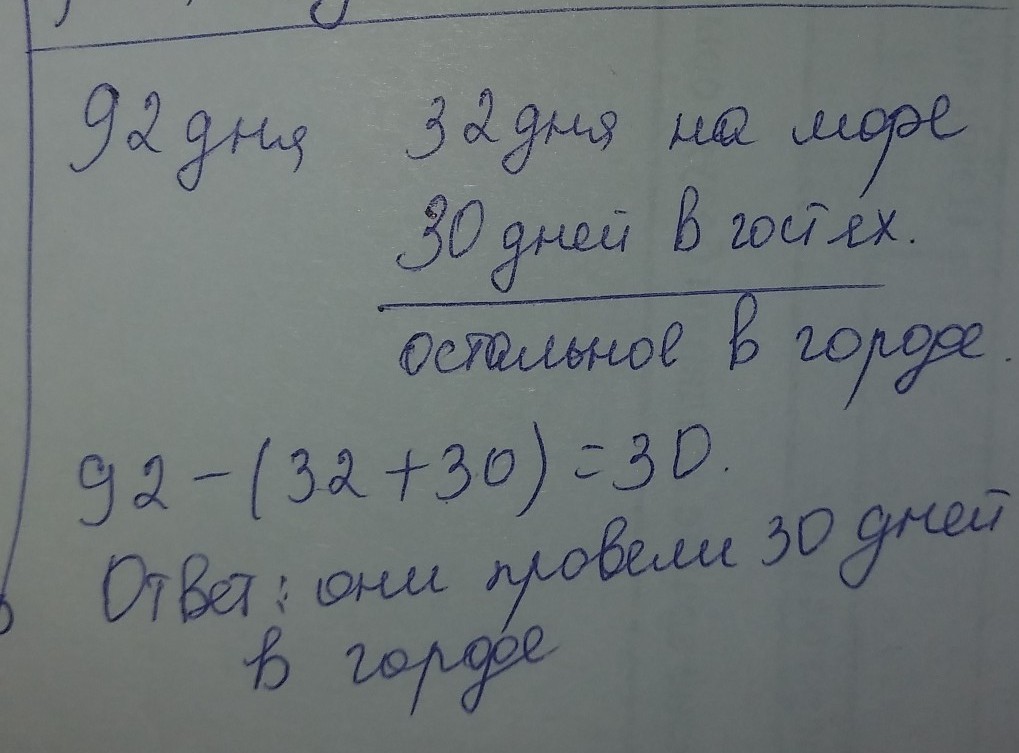 92 дня 32 дня на море
30 дней в гостях.
остальное в городе.
92 - (32 + 30) = 30.
Ответ: они провели 30 дней
в городе